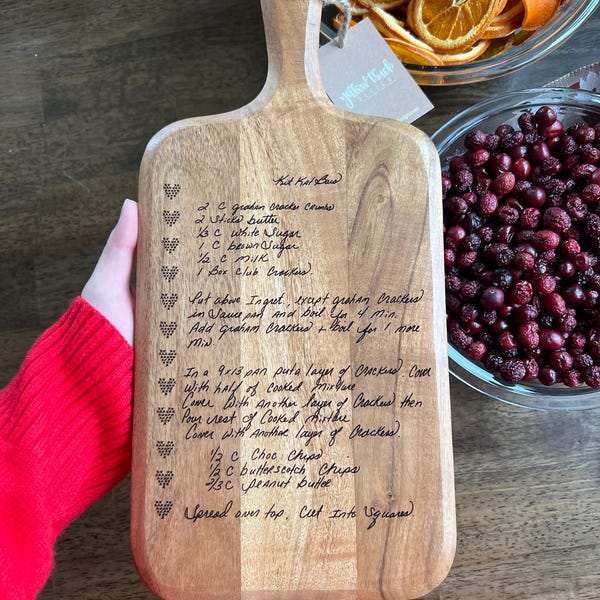 Kit Kat Bars
2 C graham cracker crumbs
2 Sticks butter
1/3 C white Sugar
1 C brown Sugar
1/2 C milk
1 Box Club Crackers
Put above Ingred. except graham Crackers
in Sauce pan and boil for 4 min.
Add graham Crackers + boil for 1 more
min.
In a 9x13 pan put a layer of Crackers. Cover
With half of Cooked mixture
Cover With Another layer of Crackers then
Pour rest of Cooked mixture
Cover With Another layer of Crackers.
1/2 C Choc Chips
1/2 C butterscotch Chips
2/3 C Peanut butter
Spread over top. Cut Into Squares.
yellow finch